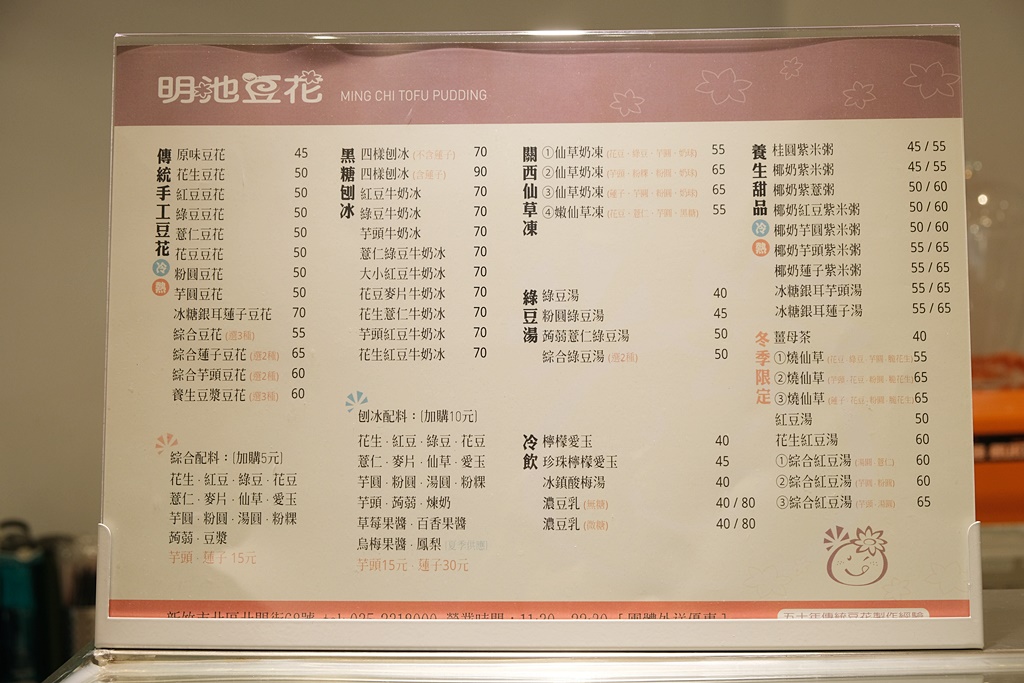 明池豆花 MING CHI TOFU PUDDING
傳統手工豆花
冷
熱
原味豆花 45
花生豆花 50
紅豆豆花 50
綠豆豆花 50
薏仁豆花 50
花豆豆花 50
粉圓豆花 50
芋圓豆花 50
冰糖銀耳蓮子豆花 70
綜合豆花 (選3種) 55
綜合蓮子豆花 (選2種) 65
綜合芋頭豆花 (選2種) 60
養生豆漿豆花 (選3種) 60
綜合配料：(加購5元)
花生．紅豆．綠豆．花豆
薏仁．麥片．仙草．愛玉
芋圓．粉圓．湯圓．粉粿
蒟蒻．豆漿
芋頭．蓮子 15元
黑糖刨冰
四樣刨冰 (不含蓮子) 70
四樣刨冰 (含蓮子) 90
紅豆牛奶冰 70
綠豆牛奶冰 70
芋頭牛奶冰 70
薏仁綠豆牛奶冰 70
大小紅豆牛奶冰 70
花豆麥片牛奶冰 70
花生薏仁牛奶冰 70
芋頭紅豆牛奶冰 70
花生紅豆牛奶冰 70
刨冰配料：(加購10元)
花生．紅豆．綠豆．花豆
薏仁．麥片．仙草．愛玉
芋圓．粉圓．湯圓．粉粿
芋頭．蒟蒻．煉奶
草莓果醬．百香果醬
烏梅果醬．鳳梨 (夏季供應)
芋頭15元．蓮子30元
關西仙草凍
①仙草奶凍 (花豆、綠豆、芋圓、奶球) 55
②仙草奶凍 (芋頭、粉粿、粉圓、奶球) 65
③仙草奶凍 (蓮子、芋圓、粉圓、奶球) 65
④嫩仙草凍 (花豆、薏仁、芋圓、黑糖) 55
綠豆湯
綠豆湯 40
粉圓綠豆湯 45
蒟蒻薏仁綠豆湯 50
綜合綠豆湯 (選2種) 50
冷飲
檸檬愛玉 40
珍珠檸檬愛玉 45
冰鎮酸梅湯 40
濃豆乳 (無糖) 40 / 80
濃豆乳 (微糖) 40 / 80
養生甜品
冷
熱
桂圓紫米粥 45 / 55
椰奶紫米粥 45 / 55
椰奶紫薏粥 50 / 60
椰奶紅豆紫米粥 50 / 60
椰奶芋圓紫米粥 50 / 60
椰奶芋頭紫米粥 55 / 65
椰奶蓮子紫米粥 55 / 65
冰糖銀耳芋頭湯 55 / 65
冰糖銀耳蓮子湯 55 / 65
冬季限定
薑母茶 40
①燒仙草 (花豆.綠豆.芋圓.脆花生) 55
②燒仙草 (芋頭.花豆.粉圓.脆花生) 65
③燒仙草 (蓮子.花豆.粉圓.脆花生) 65
紅豆湯 50
花生紅豆湯 60
①綜合紅豆湯 (湯圓.薏仁) 60
②綜合紅豆湯 (芋圓.粉圓) 60
③綜合紅豆湯 (芋頭.湯圓) 65
新竹市北區北門街68號 tel 035-2218000 營業時間：11:30 - 22:30 [ 團體外送優惠 ]
五十年傳統豆花製作經驗